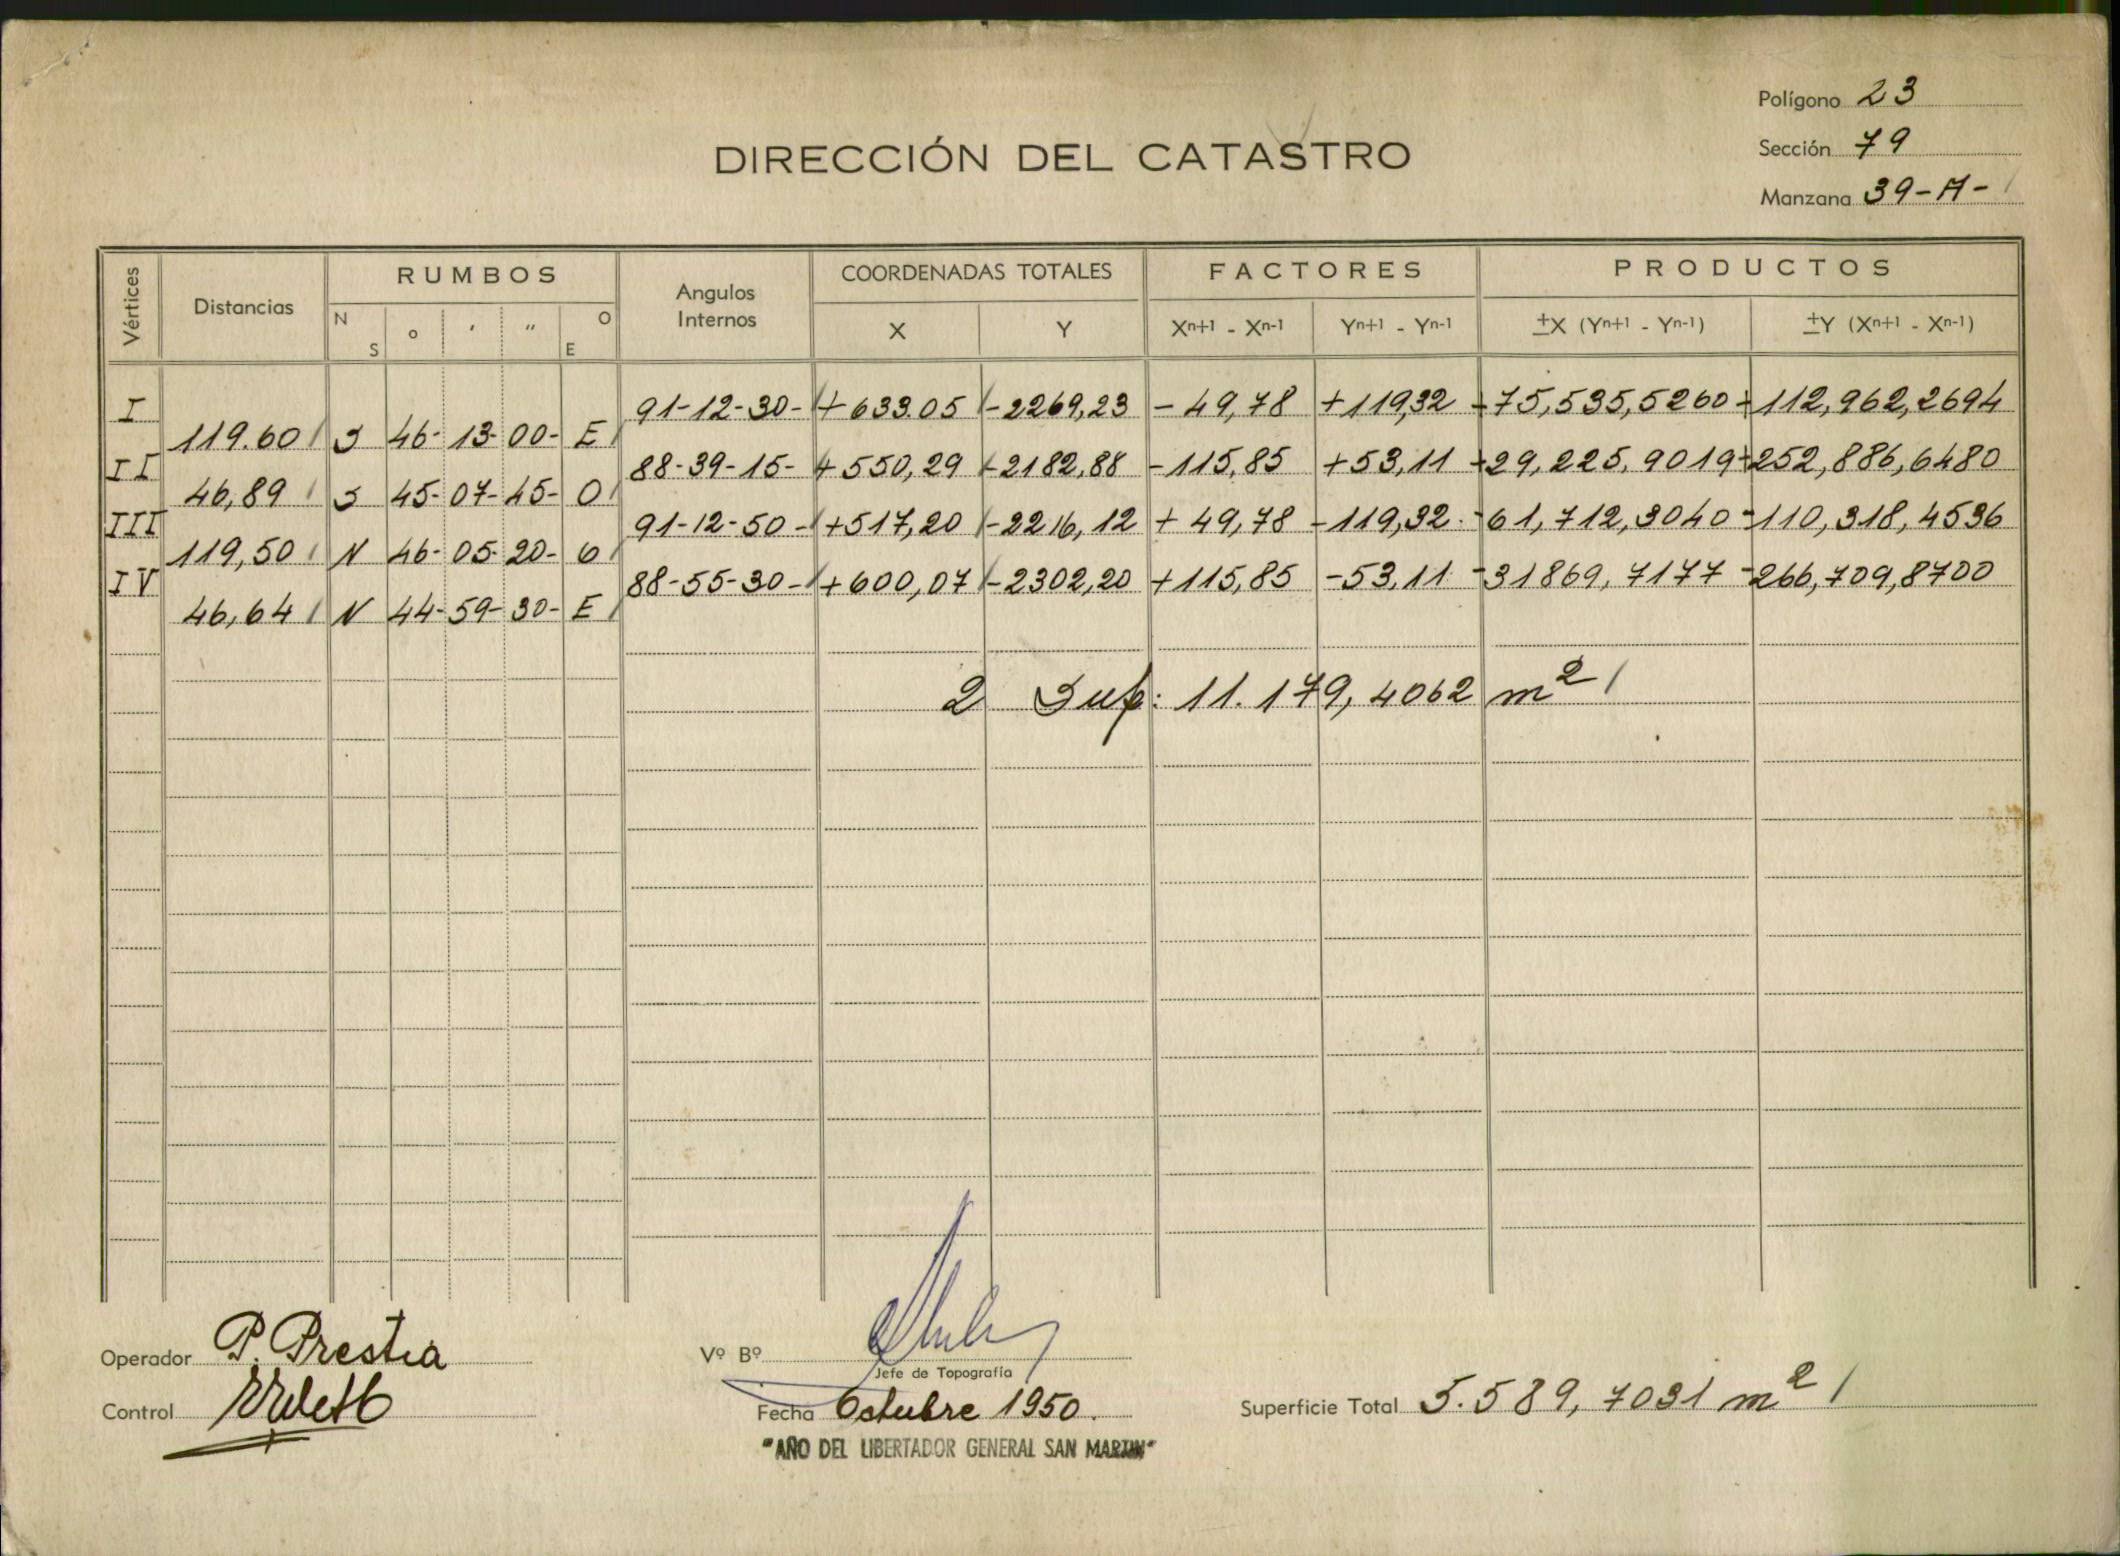 Polígono 23
Sección 79
Manzana 39-A-
DIRECCIÓN DEL CATASTRO
Vértices Distancias RUMBOS Angulos Internos COORDENADAS TOTALES FACTORES PRODUCTOS
N S o ' " O E X Y Xn+1 - Xn-1 Yn+1 - Yn-1 ±X (Yn+1 - Yn-1) ±Y (Xn+1 - Xn-1)
I 91-12-30- +633.05 -2269,23 -49,78 +119,32 +75,535,5260 +112,962,2694
119.60 S 46- 13- 00- E
II 88-39-15- +550,29 -2182,88 -115,85 +53,11 +29,225,9019 +252,886,6480
46,89 S 45- 07- 45- O
III 91-12-50- +517,20 -2216,12 +49,78 -119,32 -61,712,3040 -110,318,4536
119,50 N 46- 05- 20- O
IV 88-55-30- +600,07 -2302,20 +115,85 -53,11 -31869,7177 -266,709,8700
46,64 N 44- 59- 30- E
2 Sup: 11.179,4062 m²
Operador P. Prestia
Vº Bº
Jefe de Topografía
Control
Fecha Octubre 1950.
Superficie Total 5.589,7031 m²
"AÑO DEL LIBERTADOR GENERAL SAN MARTIN"